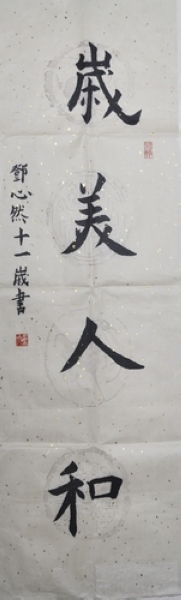 歲美人和
鄧心然十一歲書